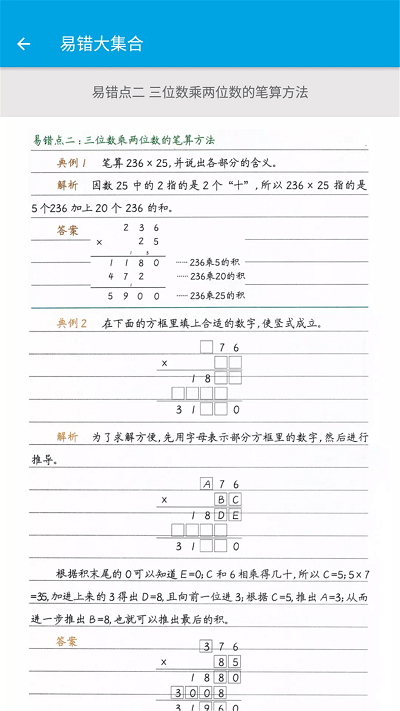 易错大集合
易错点二 三位数乘两位数的笔算方法
易错点二:三位数乘两位数的笔算方法
典例1 笔算 236 × 25,并说出各部分的含义。
解析 因数 25 中的 2 指的是 2 个“十”,所以 236 × 25 指的是
5个236 加上 20 个 236 的和。
答案 2 3 6
× 2 5
1 3
1 1 8 0 ……236乘5的积
4 7 2 ……236乘20的积
1
5 9 0 0 ……236乘25的积
典例2 在下面的方框里填上合适的数字,使竖式成立。
□ 7 6
× □ □
1 8 □ □
□ □ □ □
3 1 □ □ 0
解析 为了求解方便,先用字母表示部分方框里的数字,然后进行
推导。
A 7 6
× B C
1 8 D E
□ □ □ □
3 1 □ □ 0
根据积末尾的 0 可以知道 E=0;C 和 6 相乘得几十,所以 C=5;5×7
=35,加进上来的 3 得出 D=8,且向前一位进 3;根据 C=5,推出 A=3;从而
进一步推出 B=8,也就可以推出最后的积。
答案 3 7 6
× 8 5
1 8 8 0
3 0 0 8
3 1 9 6 0